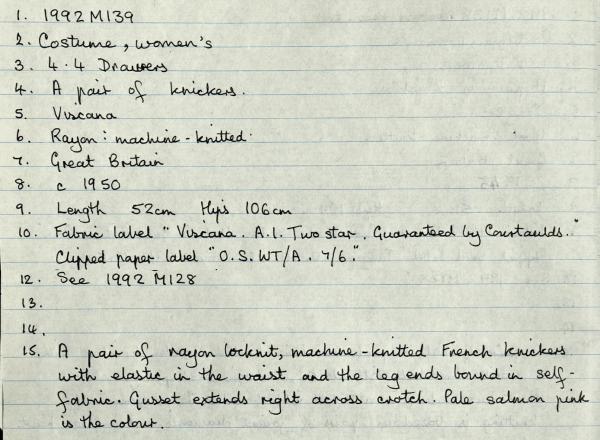 1. 1992 M139
2. Costume, women's
3. 4.4 Drawers
4. A pair of knickers.
5. Viscana
6. Rayon: machine-knitted.
7. Great Britain
8. c 1950
9. Length 52cm Hips 106cm
10. Fabric label "Viscana. A.1. Two star. Guaranteed by Courtaulds."
Clipped paper label "O.S. WT/A. 7/6."
12. See 1992 M128
13.
14.
15. A pair of rayon locknit, machine-knitted French knickers
with elastic in the waist and the leg ends bound in self-
fabric. Gusset extends right across crotch. Pale salmon pink
is the colour.